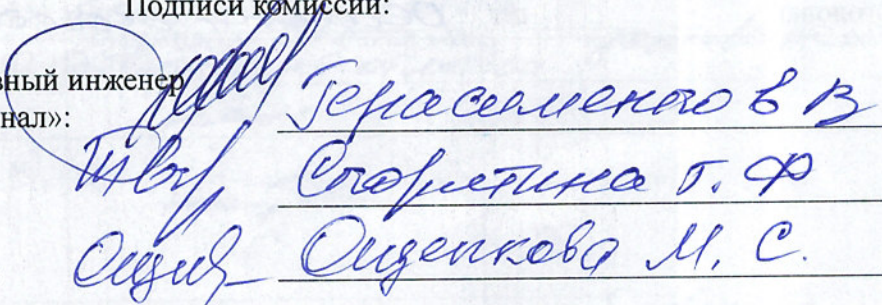 Подписи комиссии:
вный инженер
нал»:
Герасименко В В
Г. Ф
Ощепкова М. С.